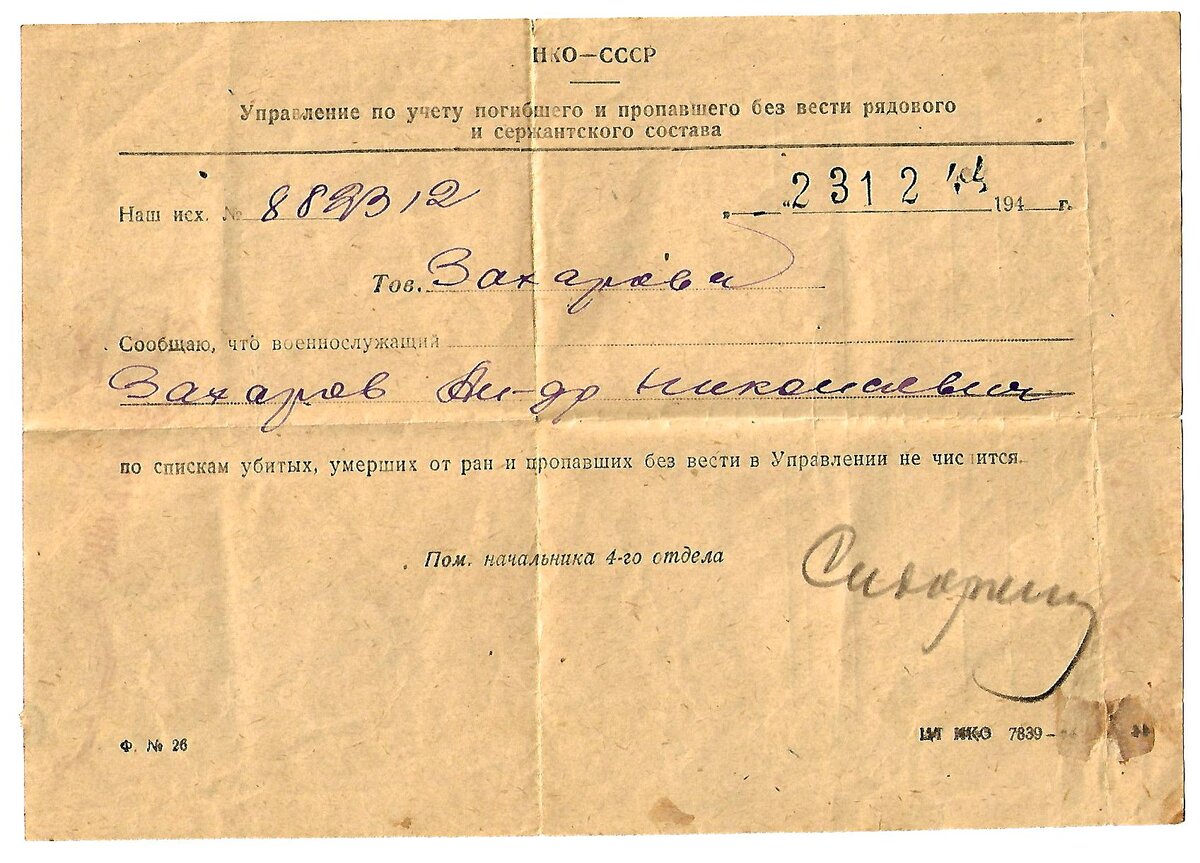 НКО—СССР
Управление по учету погибшего и пропавшего без вести рядового
и сержантского состава
Наш исх. № 882312 „ — “ 2312 194 — г.
Тов. Захарова
Сообщаю, что военнослужащий
Захаров Ал-др Николаевич
по спискам убитых, умерших от ран и пропавших без вести в Управлении не числится.
Пом. начальника 4-го отдела
Ф. № 26
ЦТ НКО 7839-